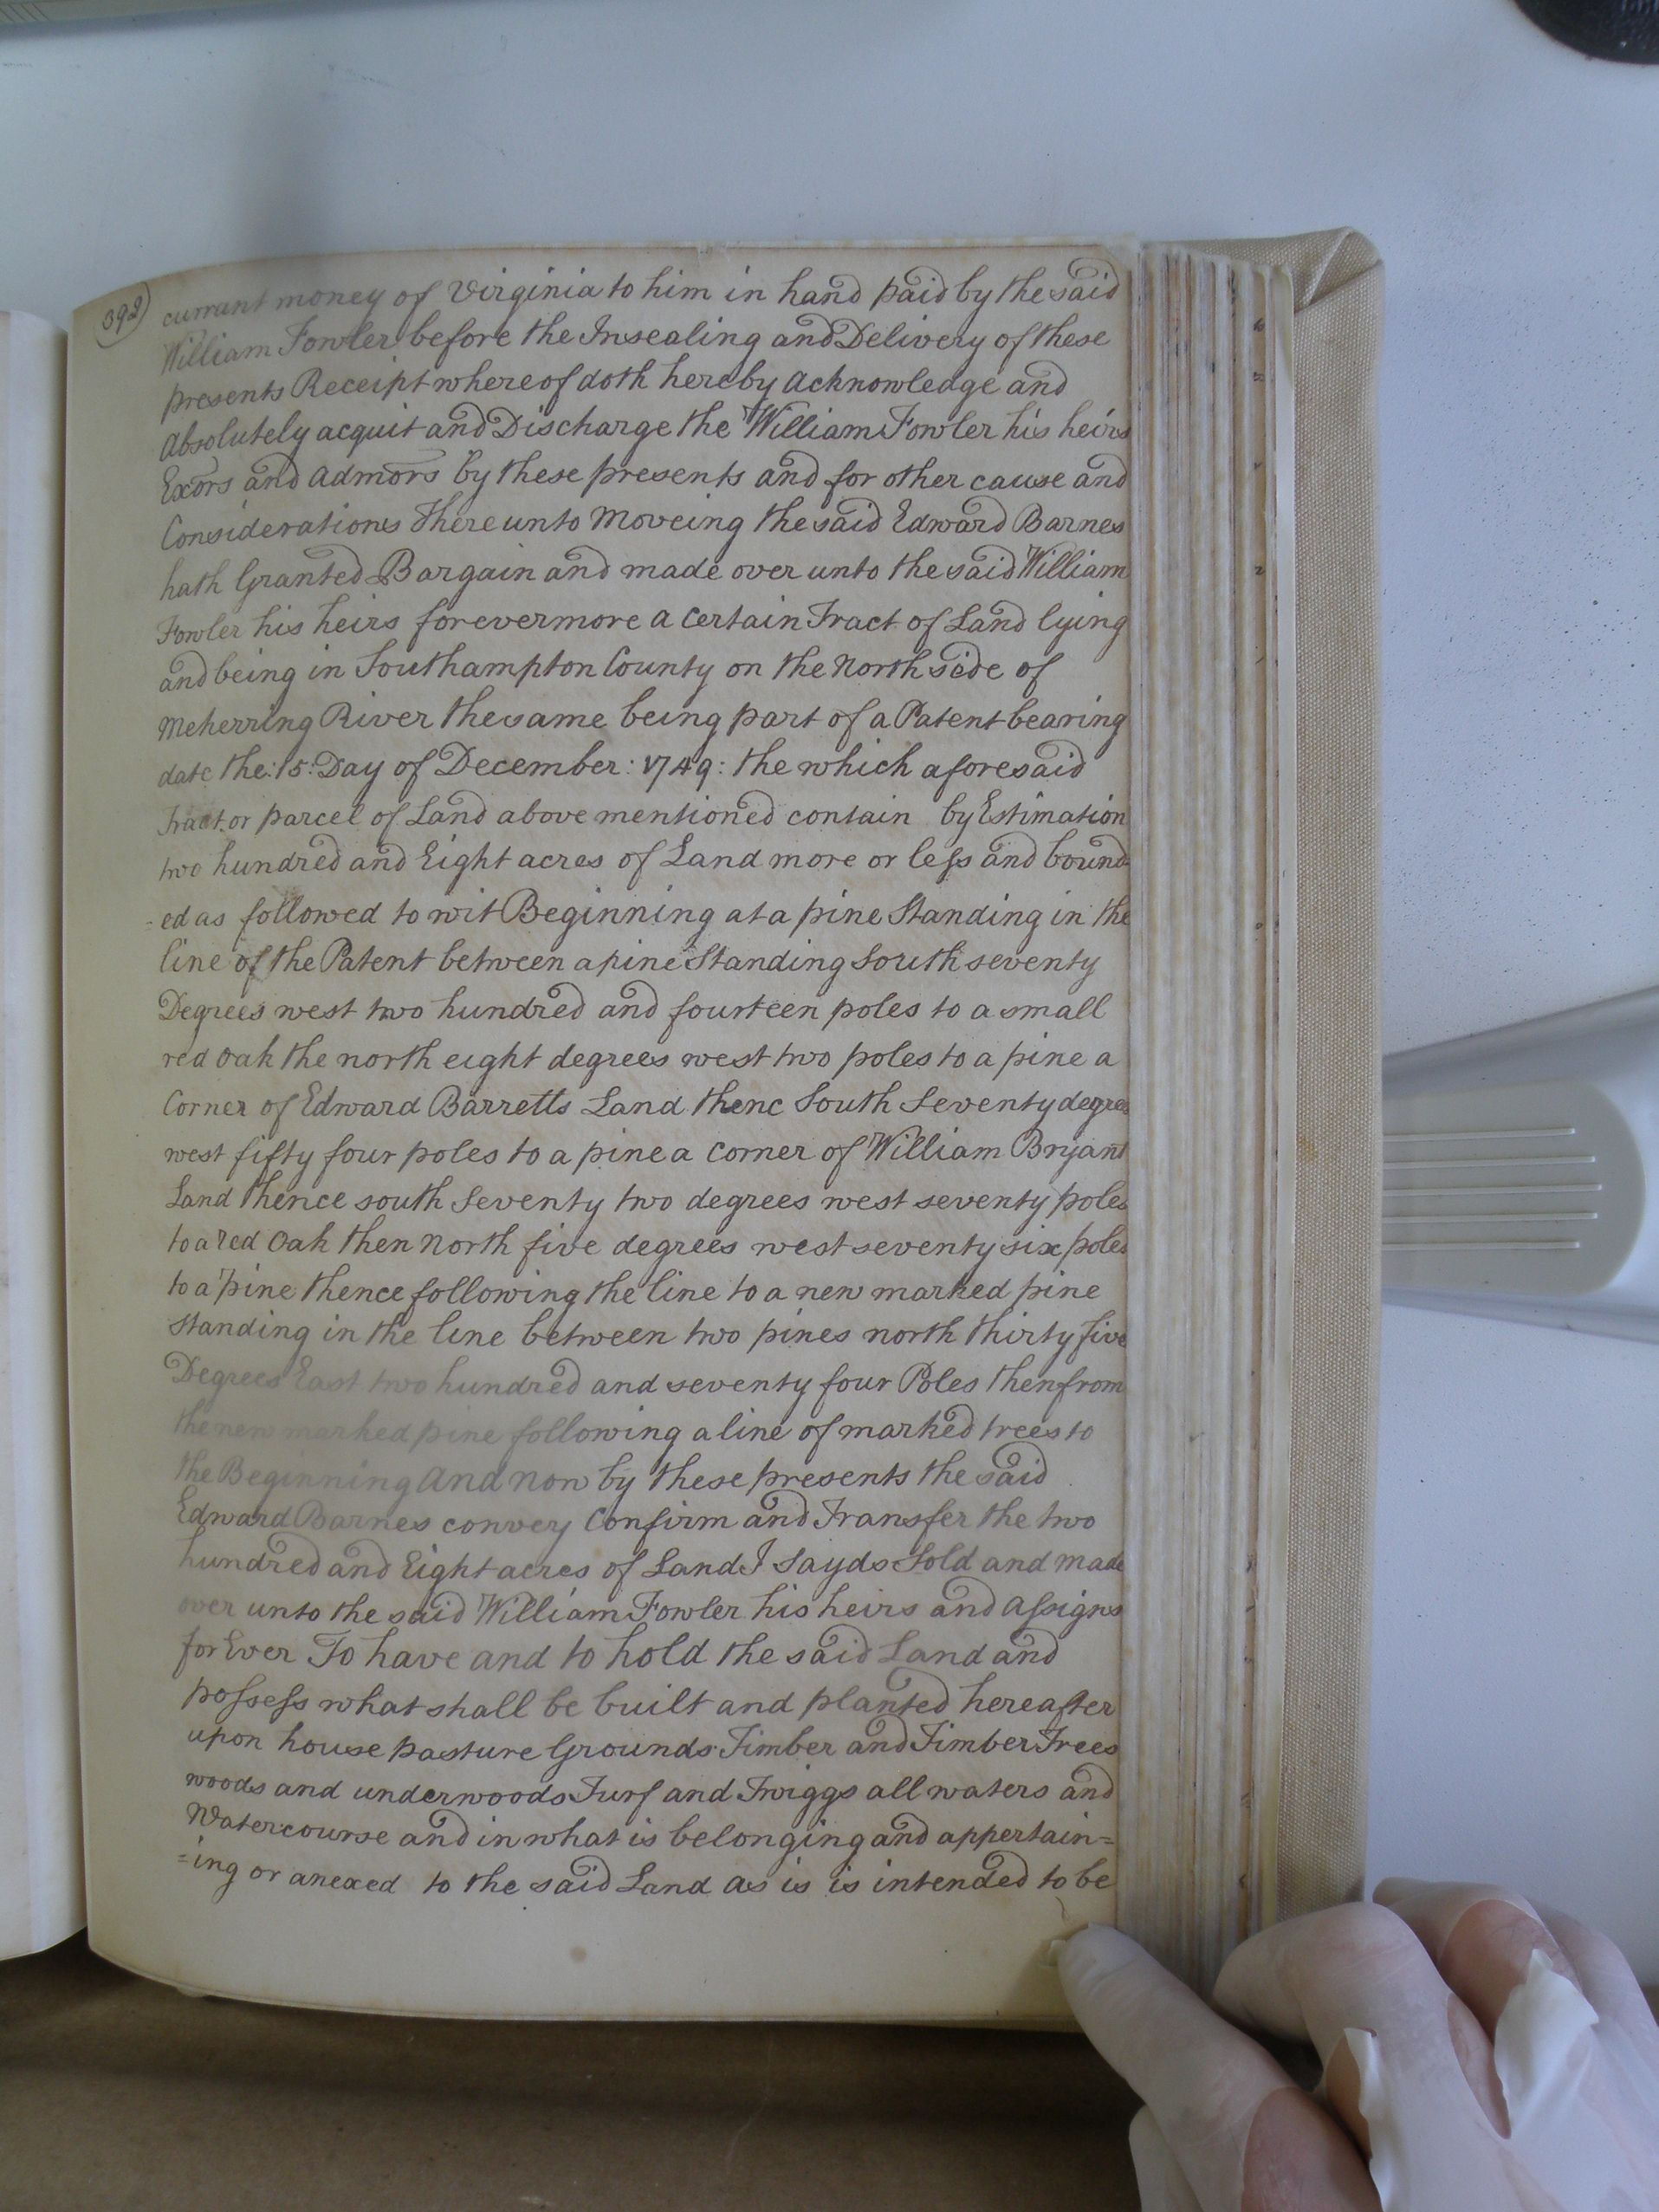 392
currant money of Virginia to him in hand paid by the said
William Fowler before the Insealing and Delivery of these
presents Receipt whereof doth hereby Acknowledge and
Absolutely acquit and Discharge the William Fowler his heirs
Exors and admors by these presents and for other cause and
Considerations Thereunto Moveing the said Edward Barnes
hath Granted Bargain and made over unto the said William
Fowler his heirs forevermore a Certain Tract of Land lying
and being in Southampton County on the North side of
Meherring River the same being part of a Patent bearing
date the :15: Day of December : 1749 : the which aforesaid
Tract or parcel of Land above mentioned contain by Estimation
two hundred and Eight acres of Land more or less and bound
=ed as followed to wit Beginning at a pine Standing in the
line of the Patent between a pine Standing South seventy
Degrees west two hundred and fourteen poles to a small
red Oak the north eight degrees west two poles to a pine a
Corner of Edward Barretts Land thenc South Seventy degrees
west fifty four poles to a pine a Corner of William Bryant
Land thence south Seventy two degrees west seventy poles
to a red Oak then North five degrees west seventy six poles
to a pine thence following the line to a new marked pine
Standing in the line between two pines north thirty five
Degrees East two hundred and seventy four Poles then from
the new marked pine following a line of marked trees to
the Beginning And now by these presents the said
Edward Barnes convey Confirm and Transfer the two
hundred and Eight acres of Land I Sayds Sold and made
over unto the said William Fowler his heirs and Assigns
for Ever To have and to hold the said Land and
possess what shall be built and planted hereafter
upon house pasture Grounds Timber and Timber Trees
woods and underwoods Turf and Twiggs all waters and
Watercourse and in what is belonging and appertain=
=ing or anexed to the said Land as is is intended to be